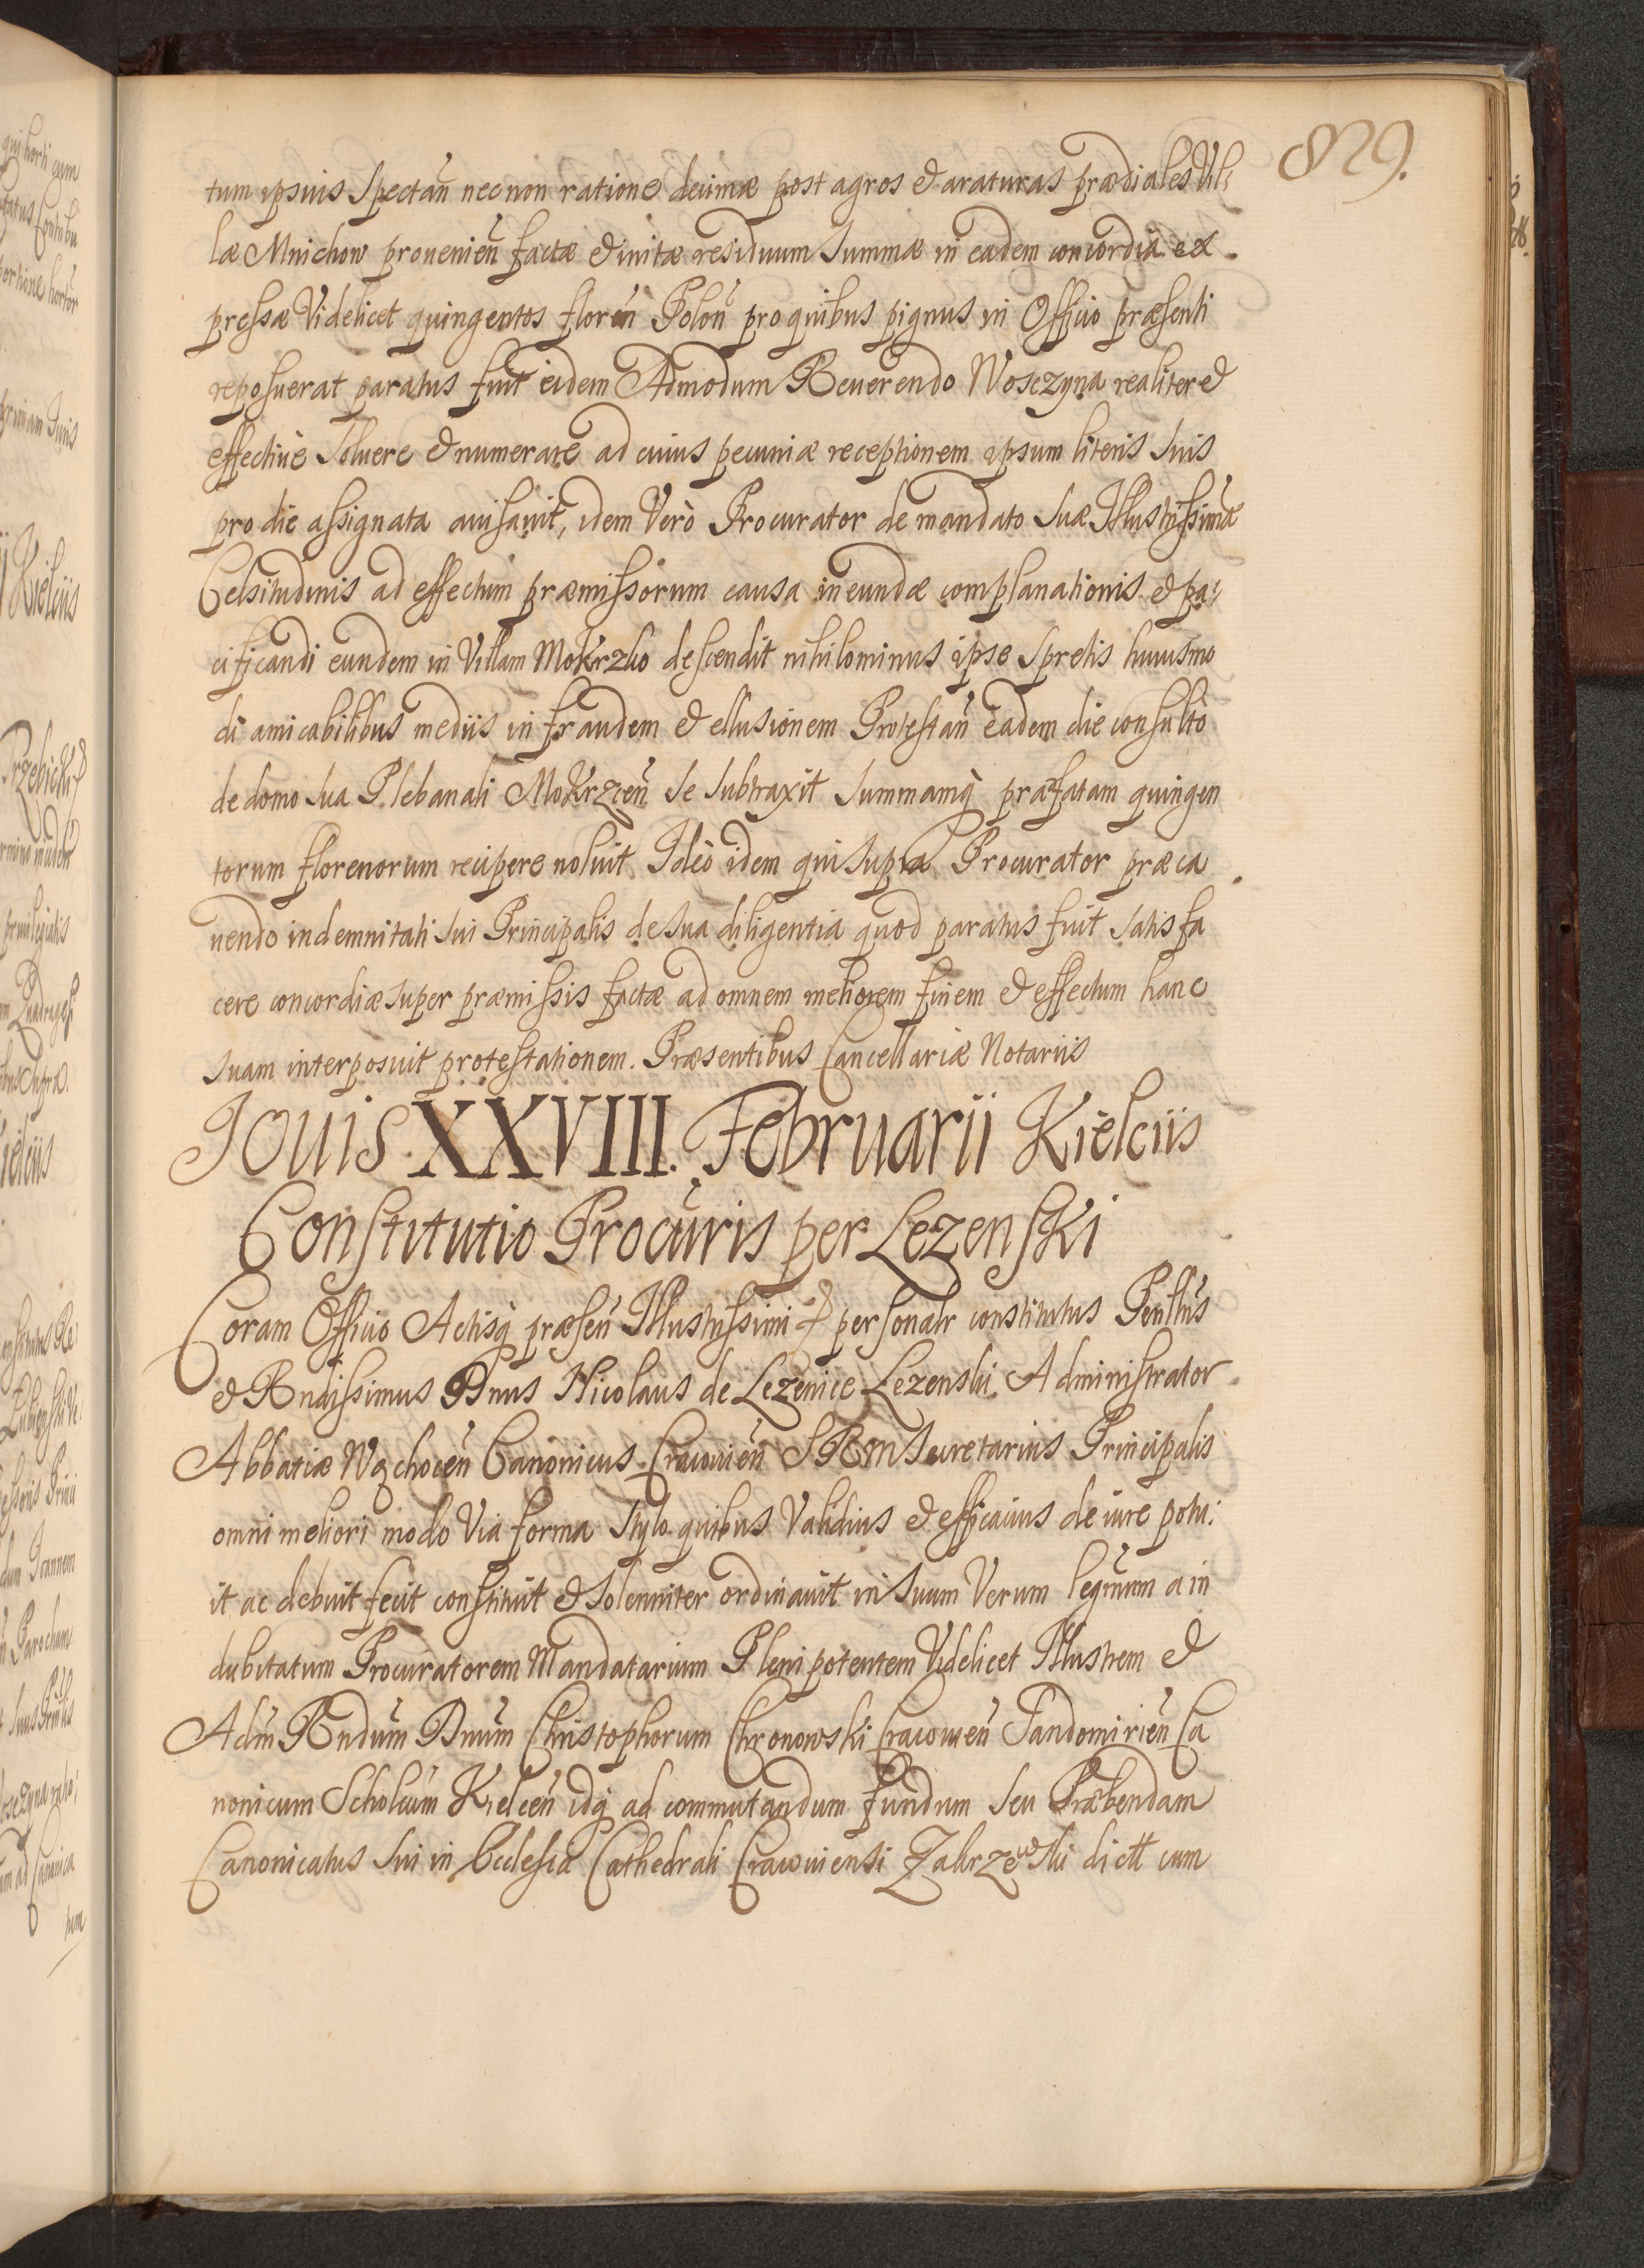 829.
tum ipsius Spectan̄ necnon ratione decimæ post agros & araturas prædiales Vil:
læ Mnichow prouenien̄ factæ & initæ residuum Summæ in eadem concordia ex
pressæ Videlicet quingentos floren̄ Polon̄ pro quibus pignus in Officio præsenti
reposuerat paratus fuit eidem Admodum Reuerendo Wosczyna realiter &
effectiuè Soluere & numerare ad cuius pecuniæ receptionem ipsum literis Suis
pro die assignata auisauit, idem Verò Procurator de mandato Suæ Illustrissimæ
Celsitudinis ad effectum præmissorum causa ineundæ complanationis & pa:
cificandi eundem in Villam Mokrzko descendit nihilominus ipse Spretis huiusmo
di amicabilibus mediis in fraudem & ellusionem Protestan̄ eadem die consultò
de domo Sua Plebanali Mokrzcen̄ Se Subtraxit Summamq̀ præfatam quingen
torum florenorum recipere noluit. Ideò idem qui Supra Procurator præca
uendo indemnitati Sui Principalis de Sua diligentia quod paratus fuit Satisfa
cere concordiæ Super præmissis factæ ad omnem meliorem finem & effectum hanc
Suam interposuit protestationem. Præsentibus Cancellariæ Notariis
Jouis XXVIII. Februarii Kielciis
Constitutio Procūris per Lezenski
Coram Officio Actisq̀ præsen̄ Illustrissimi & personalr constitutus Perillūs
& Rndissimus Dnus Nicolaus de Lezenice Lezenski Administrator
Abbatiæ Wąchocen̄ Canonicus Cracouien̄ SRM Secretarius Principalis
omni meliori modo Via forma Stylo quibus Validius & efficacius de iure potu:
it ac debuit fecit constituit & Solenniter ordinauit in Suum Verum legitimum ac in
dubitatum Procuratorem Mandatarium Plenipotentem Videlicet Illustrem &
Adm̄ Rndūm Dnūm Christophorum Chronowski Cracouien̄ Sandomirien̄ Ca
nonicum Scholcūm Kielcen̄ idq̀ ad commutandum fundum Seu Præbendam
Canonicatus Sui in Ecclesia Cathedrali Cracouiensi Zakrzewski dictt cum